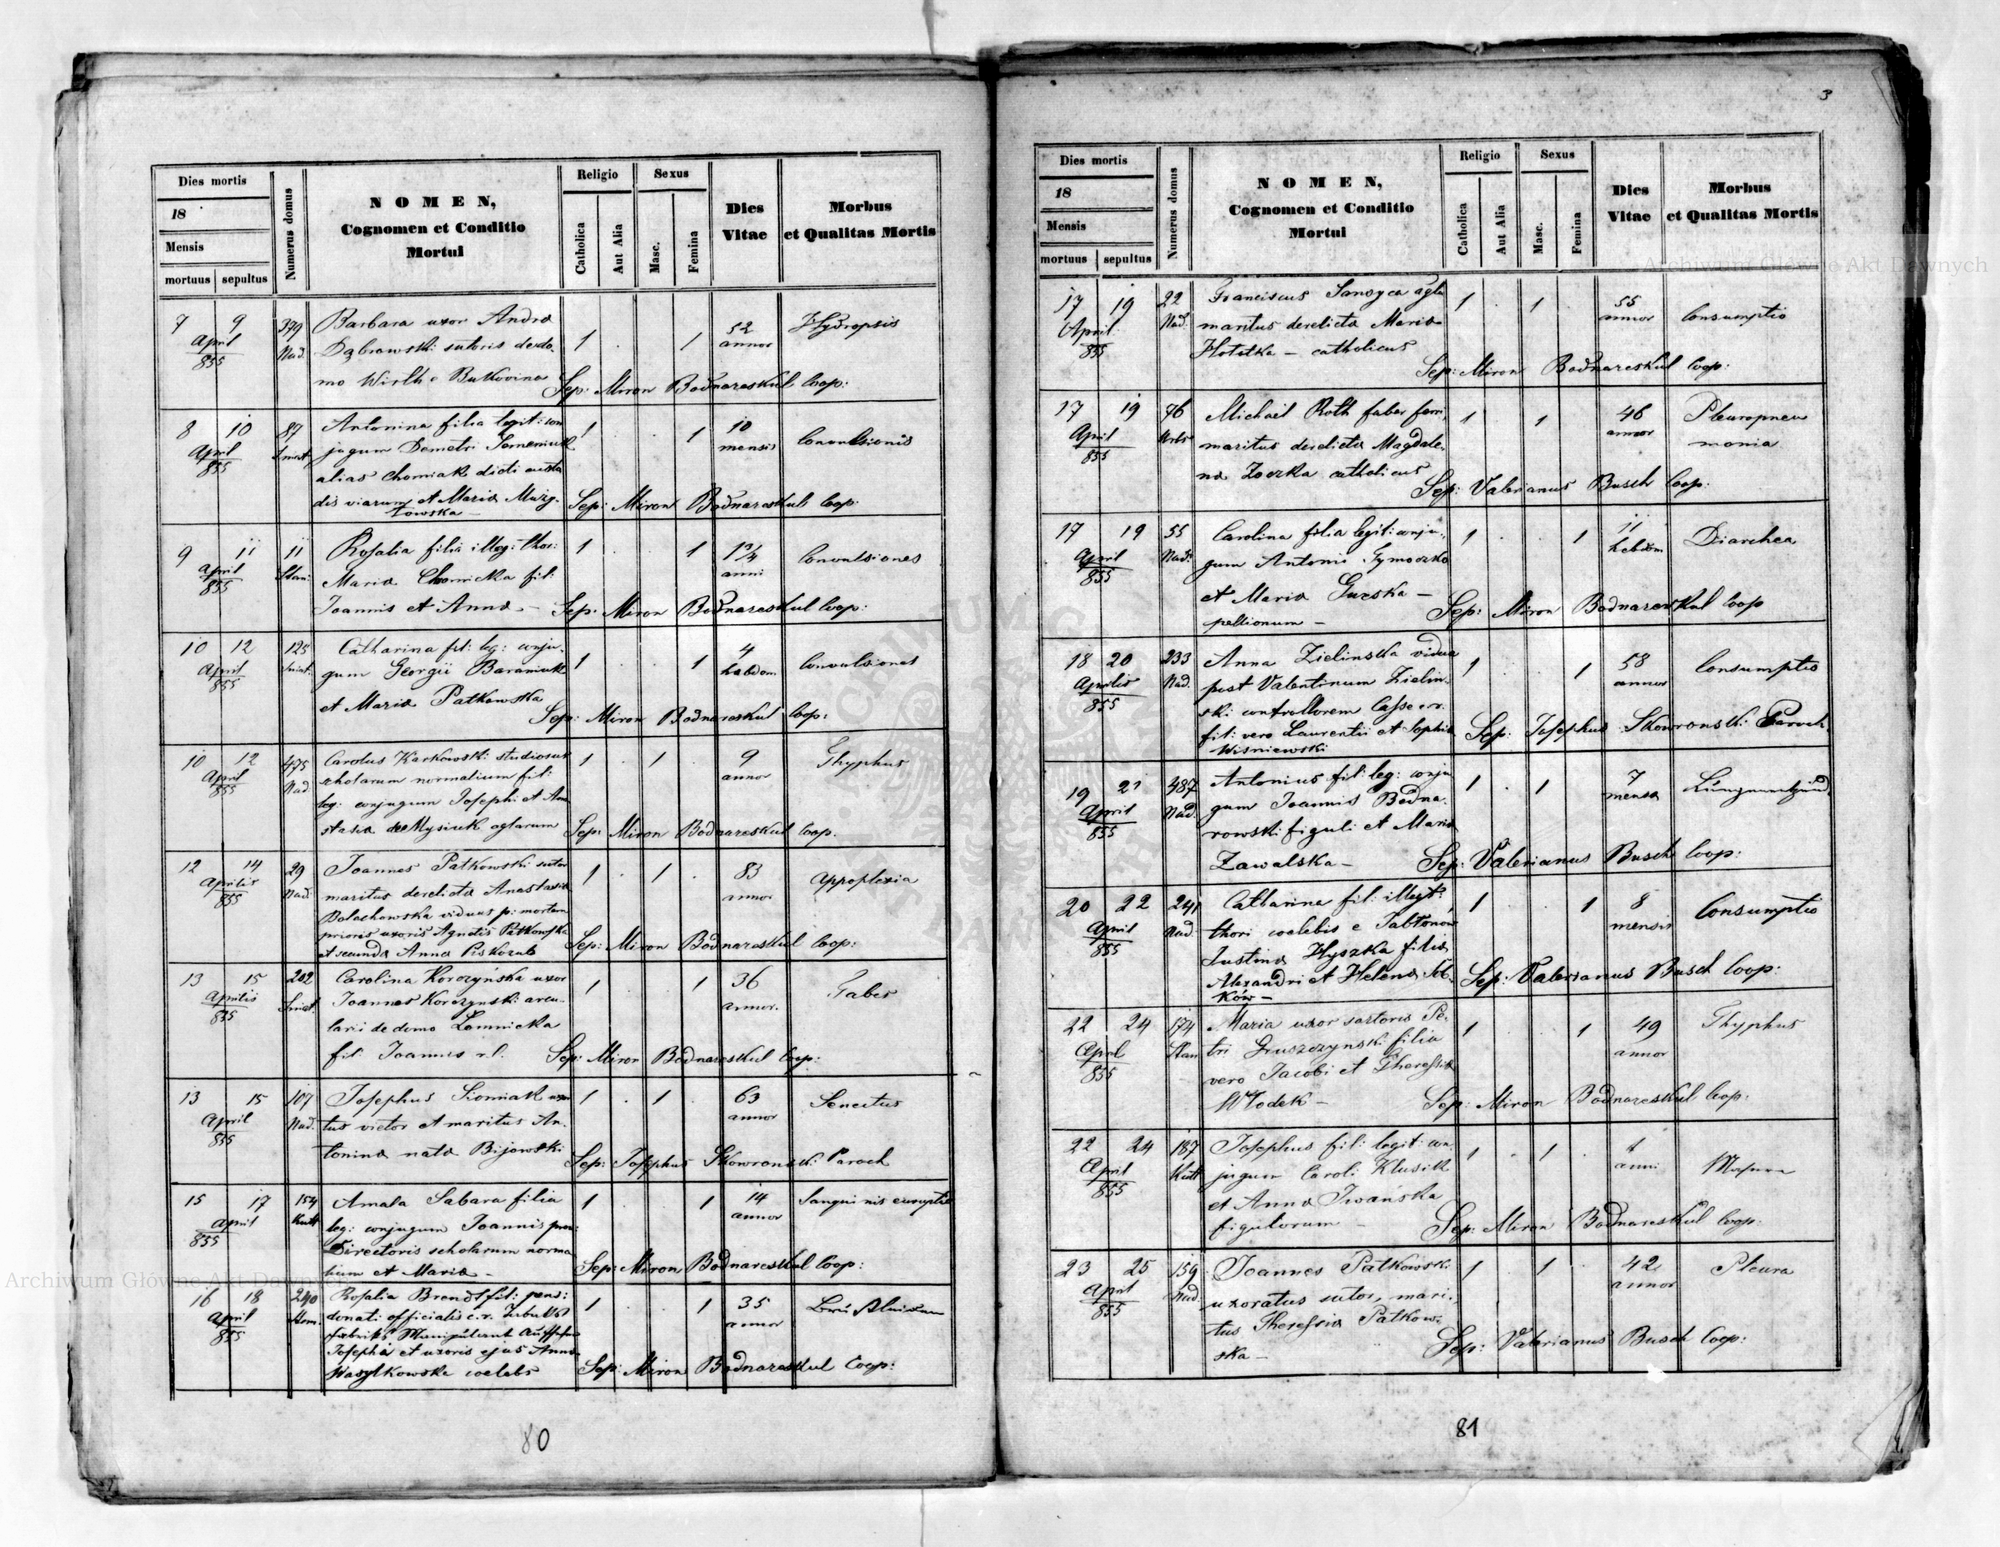 Dies mortis
Religio
Sexus
18
Numerus domus
NOMEN,
Cognomen et Conditio
Mortui
Catholica
Aut Alia
Masc.
Femina
Dies
Vitae
Morbus
et Qualitas Mortis
Mensis
mortuus sepultus
7 9 379 Barbara uxor Andrea
April Nad. Dąbrowski sutoris de do- 1 . 1 52 Hydropsis
855 mo Wirth e Bukovina annor
Sep: Miron Bodnareskul Coop:
8 10 87 Antonina filia legit: con
April Sniat. jugum Demetri Semeniuk 1 . . 1 10 Convulsionis
855 alias Chomiak dicti custo mensis
dis viarum et Maria Muzy-
towska — Sep: Miron Bodnareskul Coop:
9 11 11 Rosalia filia illeg: thor: 1 . 1 1¾ Convulsiones
April Stan: Maria Chomicka fil: anni
855 Joannis et Anna — Sep: Miron Bodnareskul Coop:
10 12 125 Catharina fil: leg: conju- 4
April Sniat. gum Georgii Baraniuk 1 . . 1 hebdom Convulsiones
855 et Maria Patkowska
Sep: Miron Bodnareskul Coop:
10 12 475 Carolus Karkowski studiosus 1 . 1 . 9 Thyphus
April Nad scholarum normalium fil: annor
855 leg: conjugum Josephi et Ana
stasia de Mysiuk
Sep: Miron Bodnareskul Coop.
12 14 29 Joannes Patkowski sutor 1 . 1 . 83 Appoplexia
Aprilis Nad. maritus derelicta Anastasia annor
855 Bolechowska viduus p: mortem
prioris uxoris Agnetis Patkowska
et secunda Anna Piskozub Sep: Miron Bodnareskul Coop:
13 15 202 Carolina Korczyńska uxor 1 . . 1 36 Tabes
Aprilis Sniat. Joannes Korczynski arcu- annor.
855 larii de domo Lomnicka
fil: Joannis r.l. Sep: Miron Bodnareskul Coop:
13 15 107 Josephus Sioniak 1 . 1 . 63 Senectus
April Nad. tus victor et maritus An- annor
855 tonina nata Bijowski
Sep: Josephus Skowronski Paroch
15 17 154 Amala Sabara filia 1 . 1 14 Sangui nis eruptio
April Kutt leg: conjugum Joannis annor
855 Directoris scholarum norma
lium et Maria — Sep: Miron Bodnareskul Coop:
16 18 240 Rosalia Brendt fil: pens: 1 . 1 35
April donati officialis c.r. annor
855
Josepha et uxoris ejus Anna
Wasylkowska coelebs Sep: Miron Bodnareskul Coop:
80
3
Dies mortis
Religio
Sexus
18
Numerus domus
NOMEN,
Cognomen et Conditio
Mortui
Catholica
Aut Alia
Masc.
Femina
Dies
Vitae
Morbus
et Qualitas Mortis
Mensis
mortuus sepultus
17 19 22 Franciscus Sanoyca 1 . 1 . 55 Consumptio
April Nad. maritus derelicta Maria annor
855 — catholicus
Sep: Miron Bodnareskul Coop:
17 19 76 Michael Roth faber ferri, 1 1 46 Pleuropneu
April Urbs maritus derelicta Magdale- annor monia
855 na Zoczka catholicus
Sep: Valerianus Busch Coop:
17 19 55 Carolina filia legit: conju- 1 . . 1 11 Diarrhea
April Nad. gum Antonii Tymoczko hebdom
855 et Maria Guzska —
pellionum — Sep: Miron Bodnareskul Coop
18 20 233 Anna Zielinska vidua 1 . . 1 58 Consumptio
Aprilis Nad. post Valentinum Zielin- annor
855 ski controllorem Cassae c.r.
fil: vero Laurentii et Sophia Sep: Josephus Skowronski Paroch
Wisniewski
19 21 487 Antonius fil: leg: conju 1 . 1 7
April Nad. gum Joannis Bodna- mensa
855 rowski figuli et Maria
Zawalska — Sep: Valerianus Busch Coop:
20 22 241 Catharina fil: illegt: 1 . . 1 8 Consumptio
April Nad. thori coelebis e Jabłonów mensis
855 Justina Hyszka filia
Alexandri et Helena
ków — Sep: Valerianus Busch Coop:
22 24 174 Maria uxor sartoris Pe- 1 . . 1 49 Thyphus
April Stan tri Gruszczynski filia annor
855 vero Jacobi et Theressia
Włodek — Sep: Miron Bodnareskul Coop:
22 24 187 Josephus fil: legit: con 1 . 1 . 1
April Kutt jugum Caroli Klusik anni
855 et Anna Iwańska
figulorum — Sep: Miron Bodnareskul Coop:
23 25 159 Joannes Patkowski 1 1 42 Pleura
April Nad uxoratus sutor, mari- annor
855 tus Theressia Patkow-
ska — Sep: Valerianus Busch Coop:
81
Archiwum Główne Akt Dawnych
Archiwum Główne Akt Dawnych